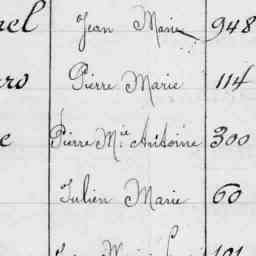 el Jean Marie 948
ro Pierre Marie 114
e Pierre M.ie Antoine 300
Julien Marie 60
Marie 101